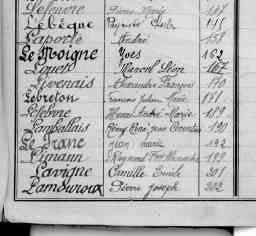 Lefeuvre Pierre Marie 147
Lebèque
Laporte André 159
Le Moigne Yves 162
Liguet Marcel Léon 167
Livenais Alexandre François 170
Lebreton François Julien Marie 181
Lefebvre Henri André Marie 189
Lamballais Rémy René Jean Corentin 190
Le Franc Jean Marie 192
Limann Raymond 199
Lavigne Camille Emile 301
Lamouroux Pierre Joseph 302